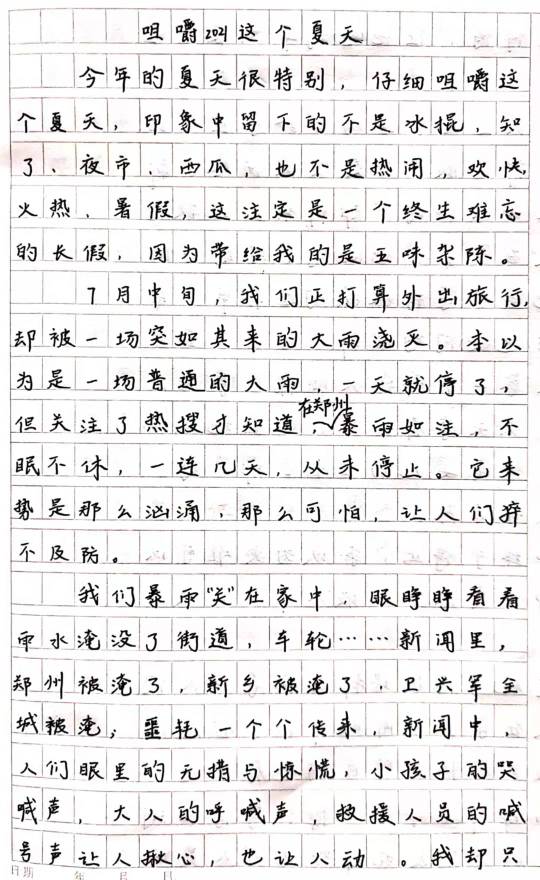 咀嚼2021这个夏天
今年的夏天很特别，仔细咀嚼这
个夏天，印象中留下的不是冰棍、知
了、夜市、西瓜，也不是热闹，欢快，
火热、暑假，这注定是一个终生难忘
的长假，因为带给我的是五味杂陈。
7月中旬，我们正打算外出旅行，
却被一场突如其来的大雨浇灭。本以
为是一场普通的大雨，一天就停了，
但关注了热搜才知道，在郑州暴雨如注，不
眠不休，一连几天，从未停止。它来
势是那么汹涌，那么可怕，让人们猝
不及防。
我们暴雨"关"在家中，眼睁睁看着
雨水淹没了街道，车轮……新闻里，
郑州被淹了，新乡被淹了，卫兴军全
城被淹；噩耗一个个传来，新闻中，
人们眼里的无措与惊慌，小孩子的哭
喊声，大人的呼喊声，救援人员的喊
号声让人揪心，也让人动。我却只
日期 年 月 日